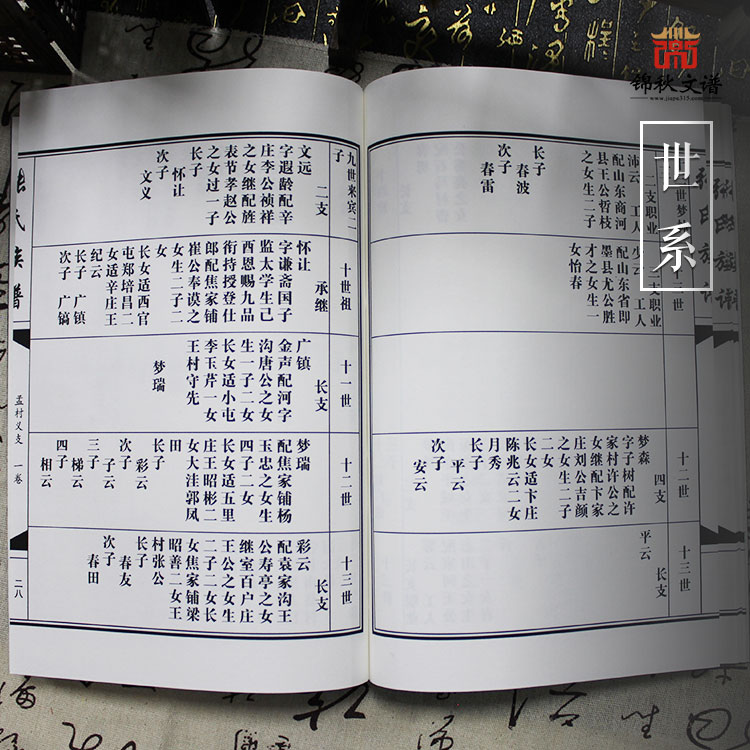 锦秋文谱
www.jiapu315.com
世系
十三世
二支 职业
沛云 工人
配山东商河
县王公哲枝
之女生二子
长子
春波
次子
春雷
二支 职业
少云 工人
配山东省即
墨县尤公胜
才之女生一
女怡春
十二世
四支
梦森
字子树配许
家村许公之
女继配卞家
庄刘公吉颜
之女生二子
二女
长女适卞庄
陈兆云二女
月秀
长子
平云
次子
安云
十三世
长支
平云
九世来宾二子
二支
文远
字遐龄配辛
庄李公祯祥
之女继配旌
表节孝赵公
之女过一子
长子
怀让
次子
文义
十世祖
承继
怀让
字谦斋国子
监太学生己
西恩赐九品
衔持授登仕
郎配焦家铺
崔公奉谟之
女生二子二
女
长女适西官
屯郑培昌二
女适辛庄王
纪云
长子 广镇
次子 广镐
十一世
长支
广镇
金声配河字
沟唐公之女
生一子二女
长女适小屯
李玉芹一女
王村守先
梦瑞
十二世
长支
梦瑞
配焦家铺杨
玉忠之女生
四子二女
长女适五里
庄王昭彬二
女大洼郭凤
田
长子
彩云
次子
子云
三子
梯云
四子
相云
十三世
长支
彩云
配袁家沟王
公寿亭之女
继室百户庄
王公之女生
二子二女长
女焦家铺梁
昭善二女王
村张公
长子
春友
次子
春田
氏族谱
孟村义支 一卷
二八